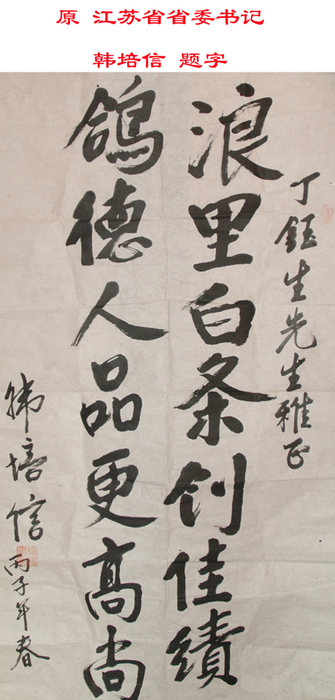 原 江苏省省委书记
韩培信 题字
丁钰生先生雅正
浪里白条创佳績
鴿德人品更高尚
韩培信
丙子年春